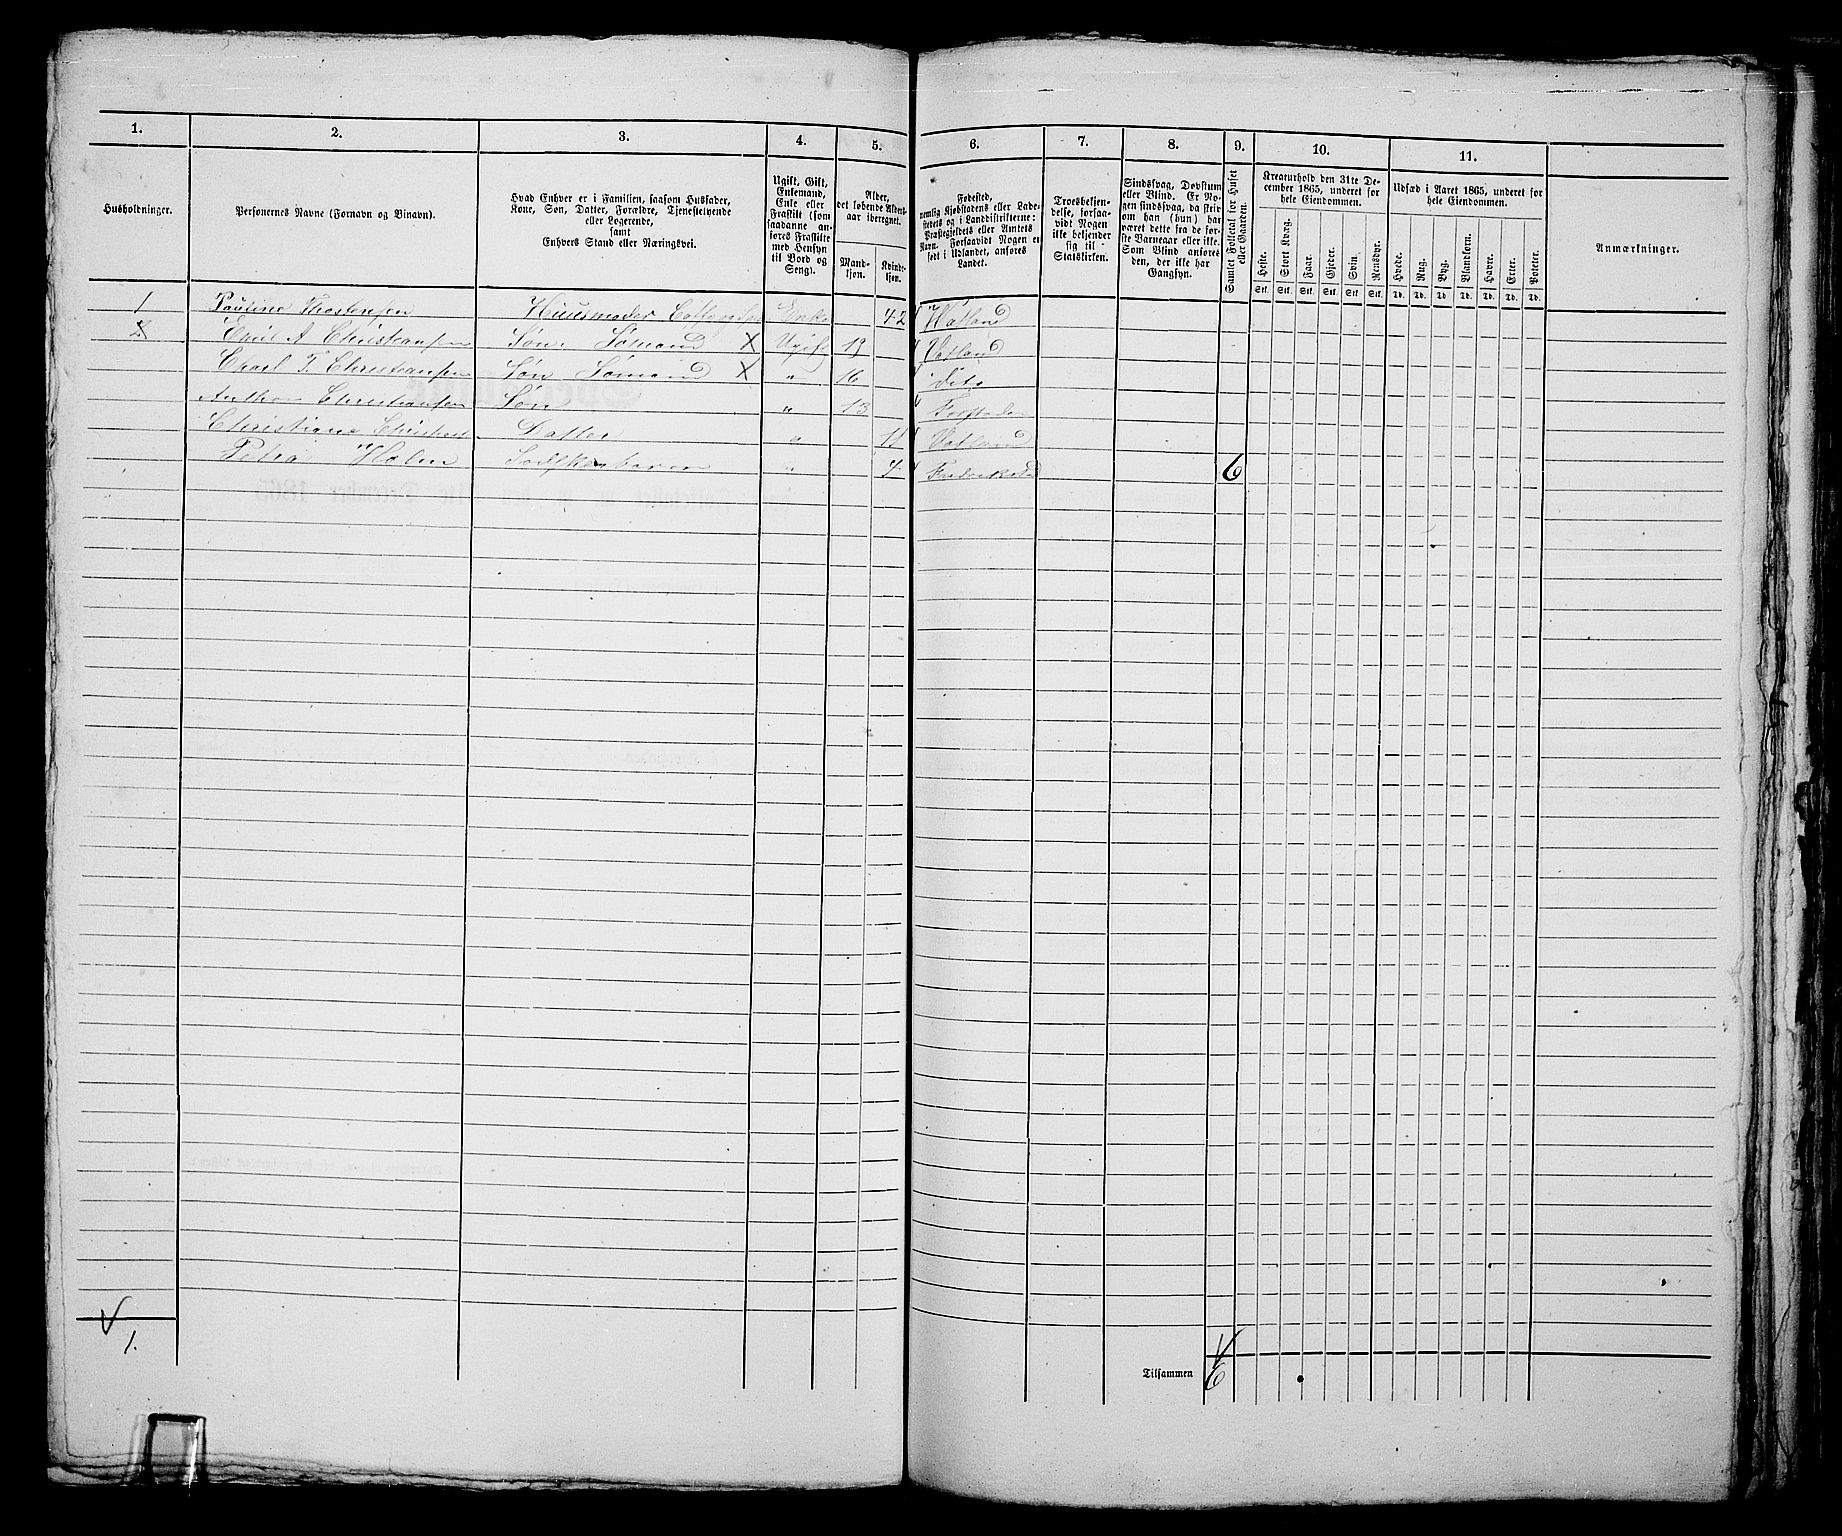 1. 2. 3. 4. 5. 6. 7. 8. 9. 10. 11.
Husholdninger.
Personernes Navne (Fornavn og Binavn).
Hvad Enhver er i Familien, saasom Husfader,
Kone, Søn, Datter, Forældre, Tjenestetyende
eller Logerende,
samt
Enhvers Stand eller Næringsvei.
Ugift, Gift,
Enkemand,
Enke eller
Fraskilt (som
saadanne an-
føres Fraskilte
med Hensyn
til Bord og
Seng).
Alder,
det løbende Alders-
aar iberegnet.
Mand-
kjøn.
Kvinde-
kjøn.
Fødested,
nemlig Kjøbstadens eller Lade-
stedets og i Landdistrikterne:
Præstegjeldets eller Amtets
Navn. Forsaavidt Nogen er
født i Udlandet, anføres
Landet.
Troesbekjen-
delse, forsaa-
vidt Nogen
ikke bekjender
sig til
Statskirken.
Sindssvag, Døvstum
eller Blind. Er No-
gen sindssvag, da skri-
ves om han (hun) har
været dette fra de før-
ste Barneaar eller ikke.
Som Blind anføres
den, der ikke har
Gangsyn.
Samlet Folketal for Huset
eller Gaarden.
Kreaturhold den 31te De-
cember 1865, underet for
hele Eiendommen.
Heste. Stort Kvæg. Faar. Gjeder. Svin. Rensdyr.
Stk. Stk. Stk. Stk. Stk. Stk.
Udsæd i Aaret 1865, underet for
hele Eiendommen.
Hvede. Rug. Byg. Blandkorn. Havre. Erter. Poteter.
Td. Td. Td. Td. Td. Td. Td.
Anmærkninger.
1 Pauline Thostensen Huusmoder Enke 42
Emil A Christiansen Søn Sømand X Ugift 19 Vatland
Charl T. Christiansen Søn Sømand X " 16 Dito
Anthon Christiansen Søn " 13 Forstaden
Christiane Datter " Vatland
Petra Holm " 4 Fredrikstad 6
1.
Tilsammen 6